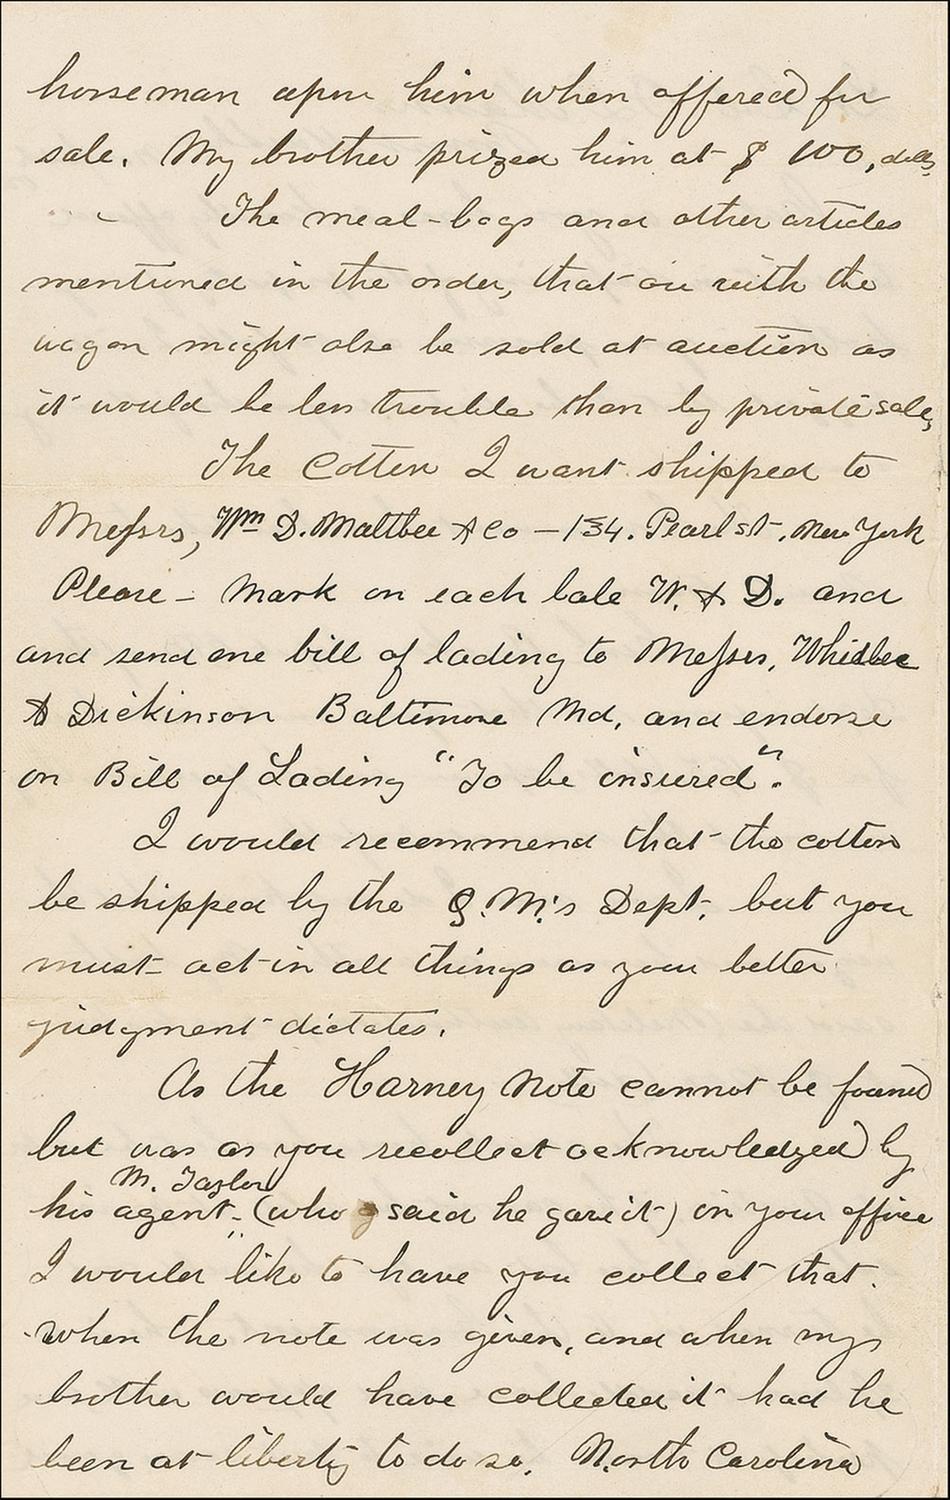 horseman upon him when offered for
sale. My brother prized him at $ 100, dolls,
The meal-bags and other articles
mentioned in the order, that are with the
wagon might also be sold at auction as
it would be less trouble than by private sale,
The Cotton I want shipped to
Messrs, Wm D. Maltbee & Co – 134. Pearl st. New York
Please – Mark on each bale W. & D. and
and send one bill of lading to Messrs,
& Dickinson Baltimore Md, and endorse
on Bill of Lading "To be insured".
I would recommend that the cotton
be shipped by the Q.M.'s Dept, but you
must act in all things as your better
judgment dictates.
As the Harney Note cannot be found
but was as you recollect acknowledged by
M. Taylor
his agent – (who said he gave it) in your office
I would like to have you collect that.
When the note was given, and when my
brother would have collected it had he
been at liberty to do so, North Carolina